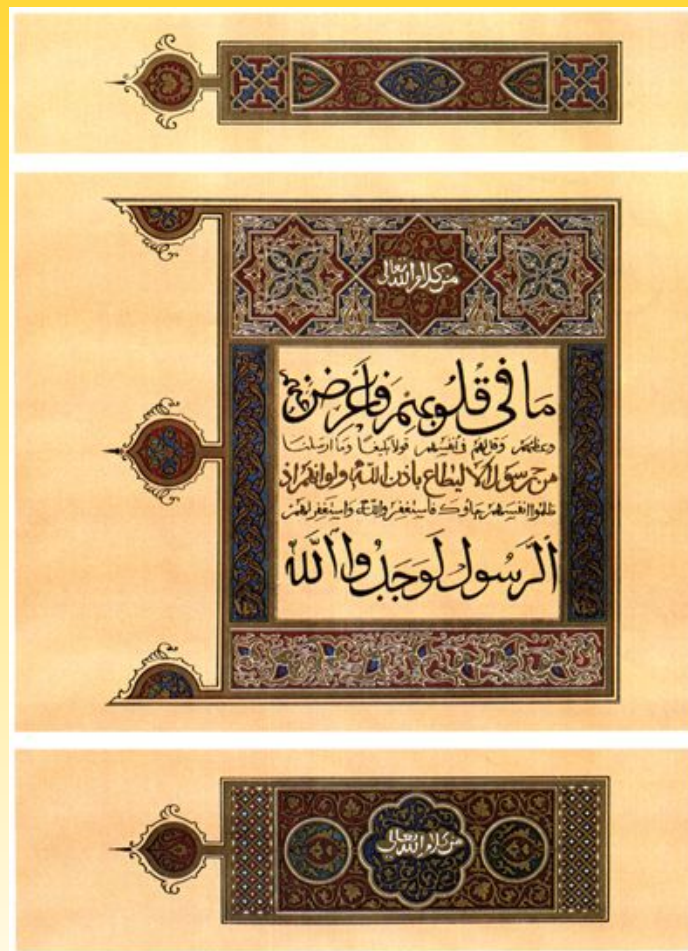 من كلام الله تعالى
ما في قلوبهم فأعرض عنهم
وعظهم وقل لهم في أنفسهم قولا بليغا وما أرسلنا
من رسول إلا ليطاع بإذن الله ولو أنهم إذ
ظلموا أنفسهم جاؤوك فاستغفروا الله واستغفر لهم
الرسول لوجدوا الله
من كلام الله تعالى